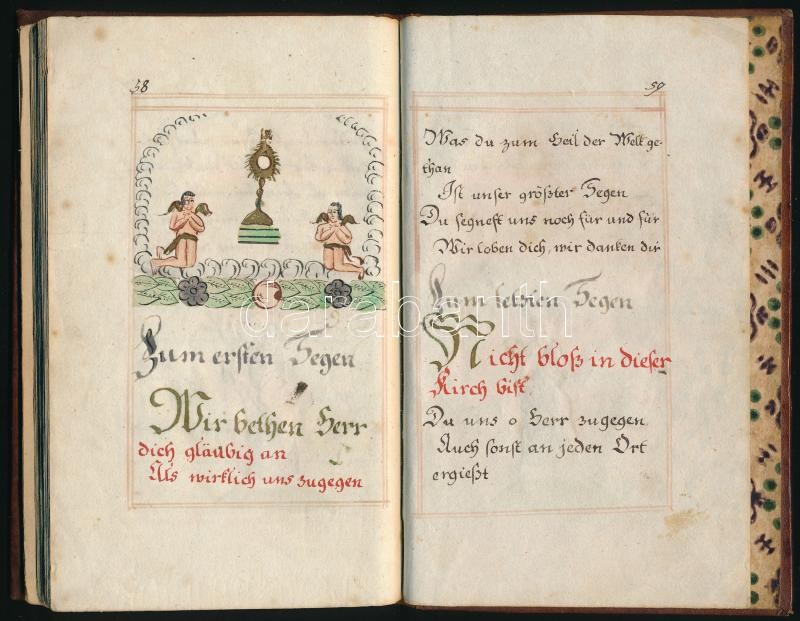 58
Zum ersten Segen
Wir bethen Herr
dich gläubig an
Als wirklich uns zugegen
59
Was du zum Heil der Welt ge-
than
Ist unser größter Segen
Du segnest uns noch für und für
Wir loben dich, wir danken dir
Zum letzten Segen
Nicht bloß in dieser
Kirch bist
Du uns o Herr zugegen
Auch sonst an jeden Ort
ergießt
darabanth